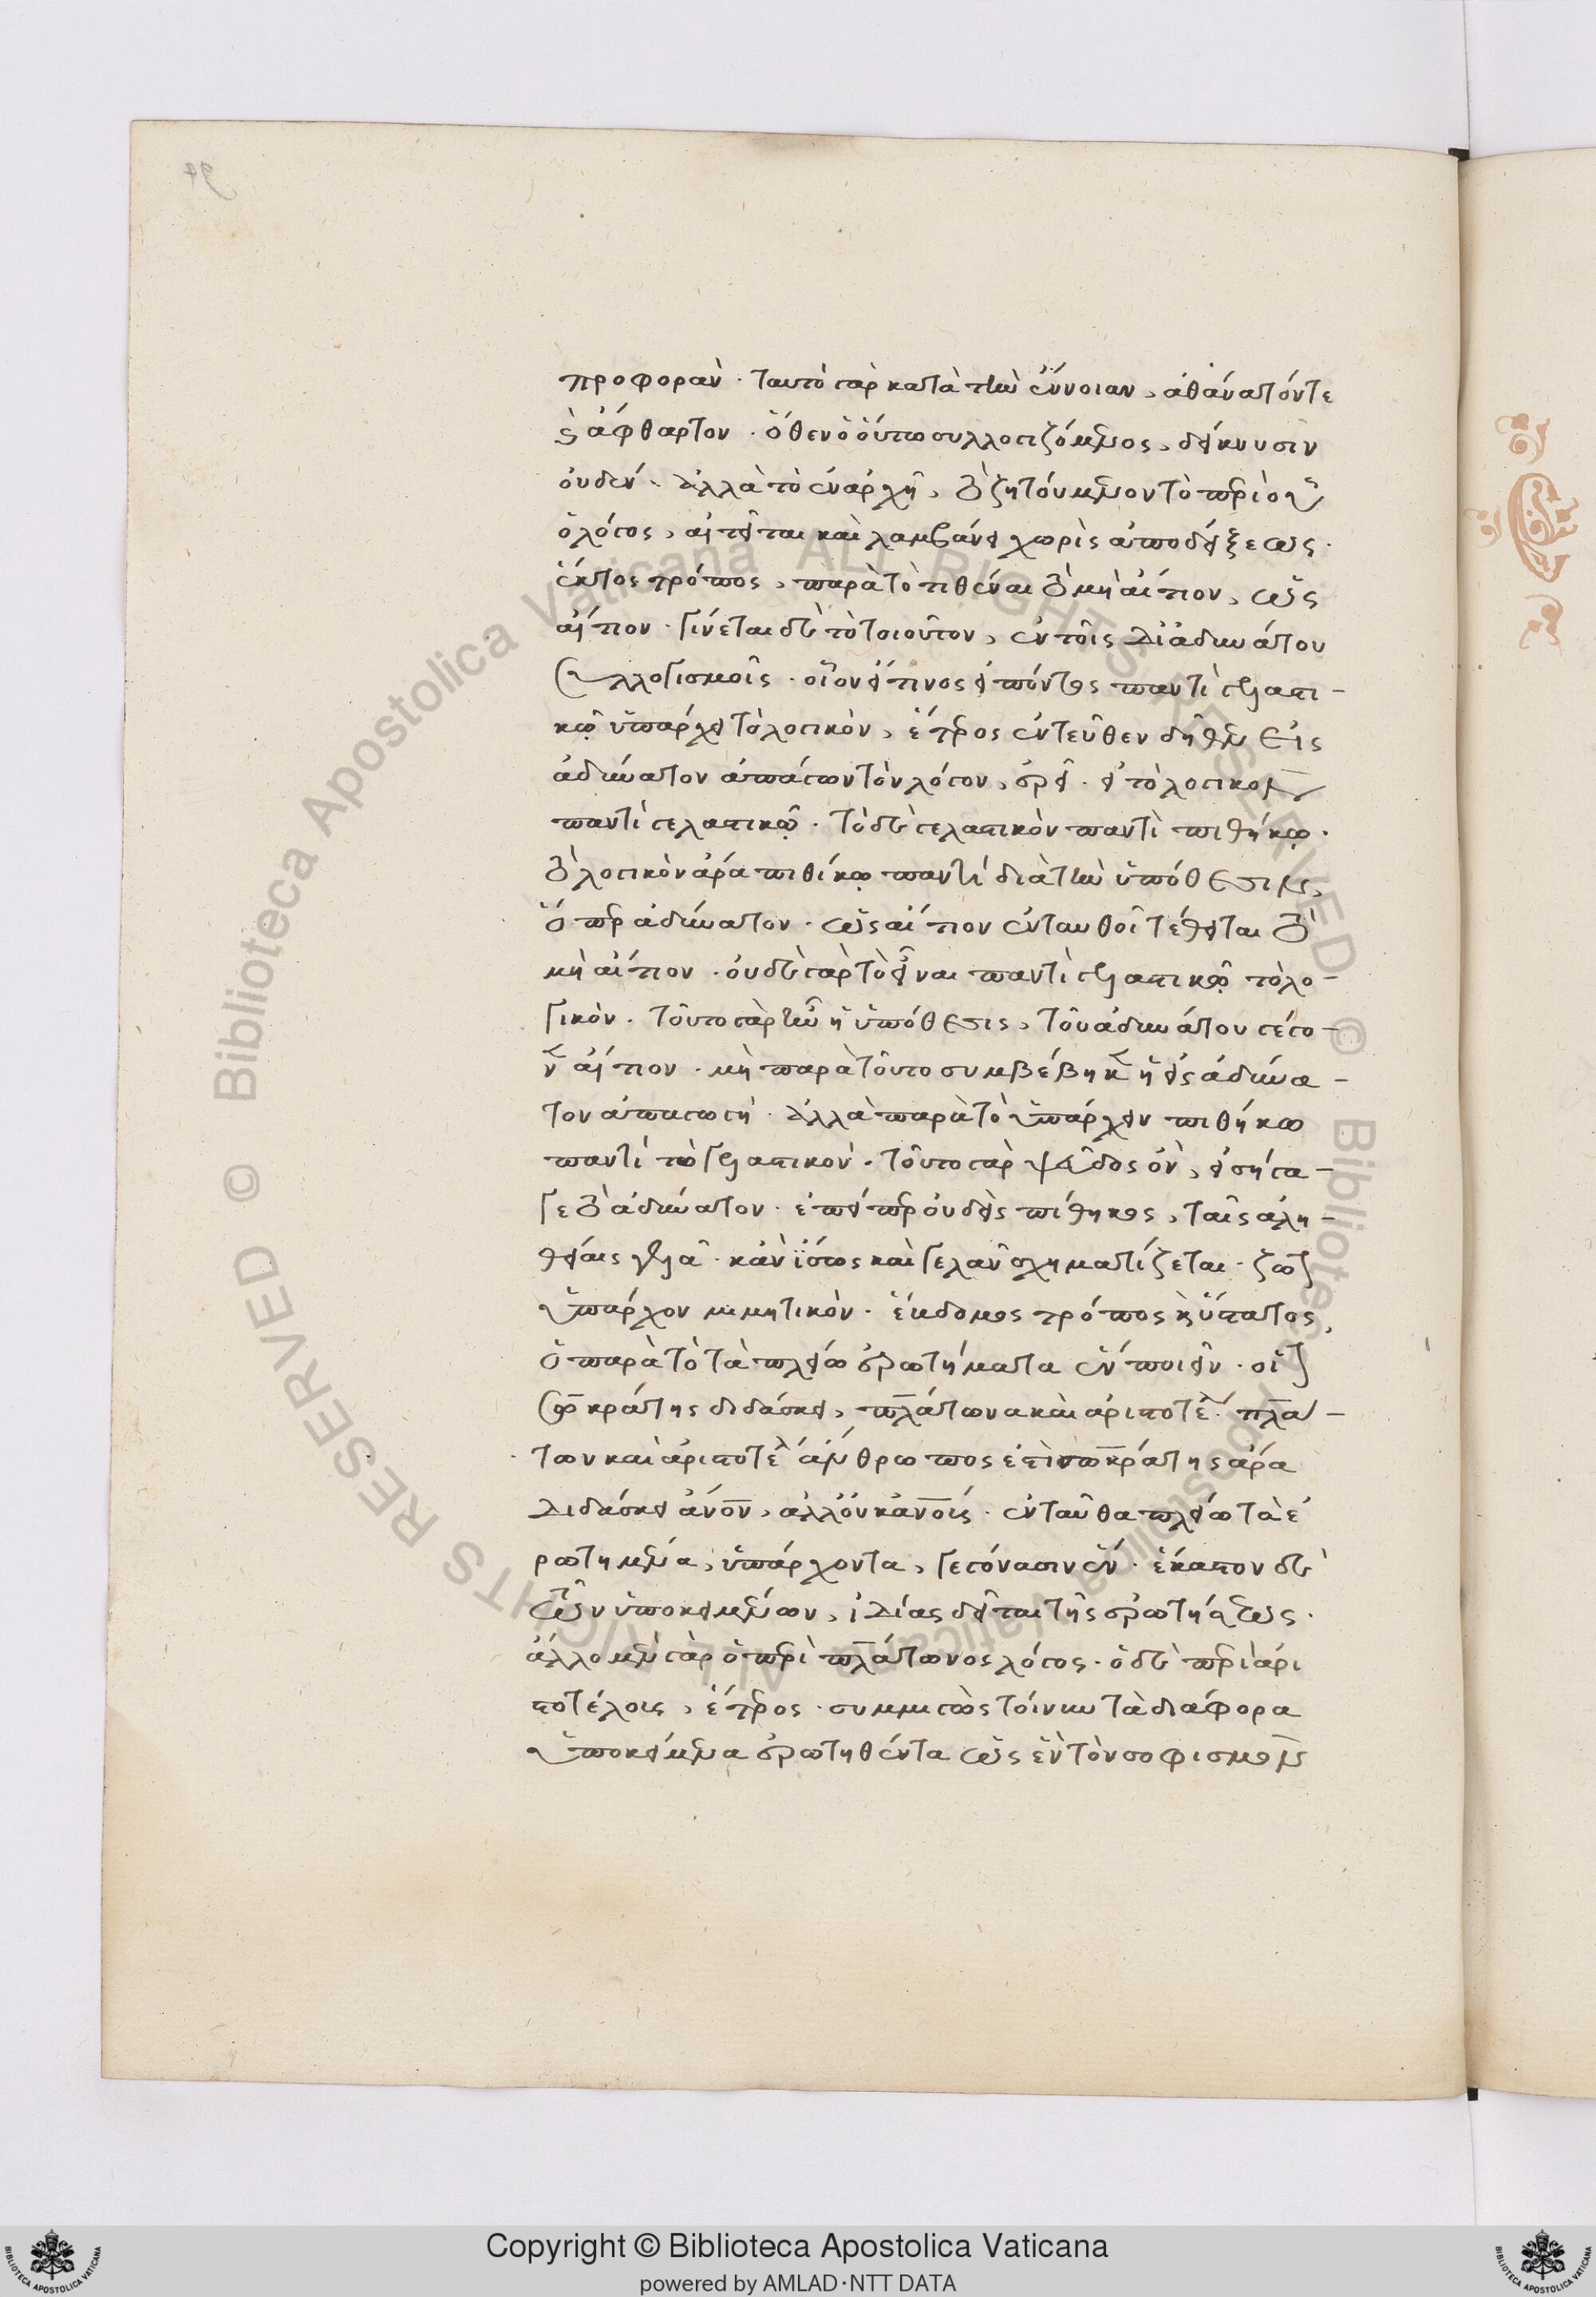 προφοράν. ταυτὸ γὰρ κατὰ τὴν ἔννοιαν, ἀθάνατόν τε
ϗ ἄφθαρτον. ὅθεν ὁ οὕτω συλλογιζόμενος, δείκνυσιν
οὐδέν. ἀλλὰ τὸ ἐν ἀρχῇ, τὸ ζητούμενον τὸ περὶ οὗ
ὁ λόγος, αἰτεῖται καὶ λαμβάνει χωρὶς ἀποδείξεως.
ἕκτος τρόπος, παρὰ τὸ τιθέναι τὸ μὴ αἴτιον, ὡς
αἴτιον. γίνεται δὲ τὸ τοιοῦτον, ἐν τοῖς δι' ἀδυνάτου
συλλογισμοῖς. οἷον εἴ τινος εἰπόντος παντὶ γελαστι-
κῷ ὑπάρχει τὸ λογικὸν, ἕτερος ἐντεῦθεν δῆθεν εἰς
ἀδύνατον ἀπάγων τὸν λόγον, ἐρεῖ. εἰ τὸ λογικὸν
παντὶ γελαστικῷ. τὸ δὲ γελαστικὸν παντὶ πιθήκῳ.
τὸ λογικὸν ἄρα πιθήκῳ παντί διὰ τὴν ὑπόθεσιν,
ὅπερ ἀδύνατον. ὡς αἴτιον ἐνταυθοῖ τέθειται τὸ
μὴ αἴτιον. οὐδὲ γὰρ τὸ εἶναι παντὶ γελαστικῷ τὸ λο-
γικόν. τοῦτο γὰρ ἦν ἡ ὑπόθεσις, τοῦ ἀδυνάτου γέγο-
νεν αἴτιον. μὴ παρὰ τοῦτο συμβέβηκεν ἡ εἰς ἀδύνα-
τον ἀπαγωγή. ἀλλὰ παρὰ τὸ ὑπάρχειν πιθήκω
παντί τὸ γελαστικόν. τοῦτο γὰρ ψεῦδος ὂν, εἰσήγα-
γε τὸ ἀδύνατον. ἐπείπερ οὐδεὶς πίθηκος, ταῖς ἀλη-
θείαις γελᾶ. κἂν ἴσως καὶ γελᾶν σχηματίζεται. ζῶον
ὑπάρχον μιμητικόν. ἕβδομος τρόπος ϗ ὕστατος,
ὁ παρὰ τὸ τὰ πλείω ἐρωτήματα ἓν ποιεῖν. οἷον
σωκράτης διδάσκει, πλάτωνα καὶ ἀριστοτέλ. πλά-
των καὶ ἀριστοτέλ ἄνθρωπος ἐστὶ σωκράτης ἄρα
διδάσκει ἄνον, ἀλλ' οὐκ ἀνοις. ἐνταῦθα πλείω τὰ ἐ
ρωτημένα, ὑπάρχοντα, γεγόνασιν ἕν. ἕκαστον δὲ
τῶν ὑποκειμένων, ἰδίας δεῖται τῆς ἐρωτήσεως.
ἄλλο μὲν γὰρ ὁ περὶ πλάτωνος λόγος. ὁ δὲ περὶ ἀρι
στοτέλους, ἕτερος. συμμιγῶς τοίνυν τὰ διάφορα
ὑποκείμενα ἐρωτηθέντα ὡς ἓν τὸν σοφισμὸν